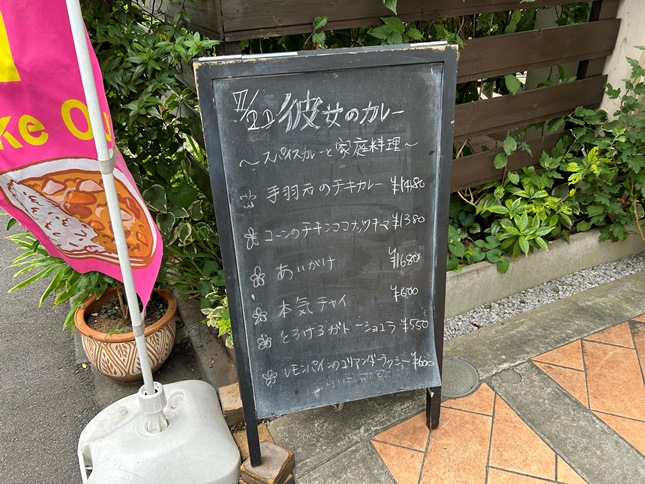 ke Ou
7/22 彼女のカレー
〜スパイスカレーと家庭料理〜
手羽元のチキカレー ¥1480
コーンのチキンココナッツキーマ ¥1380
あいがけ ¥1680
本気チャイ ¥600
とろけるガトーショコラ ¥550
レモンパインのコリアンダーラッシー ¥600